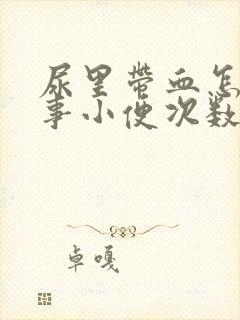 尿里带血怎
事小便次数
卓嘎